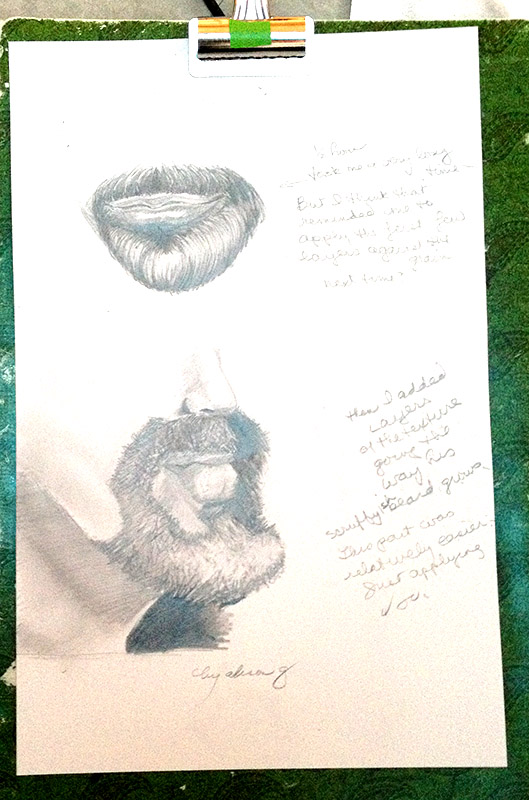 1 hour
took me very long
time
But I think that
reminded me to
apply the first few
layers against the
grain
next time.
then I added
layers
of the texture
going the
way his
scruffy beard grows
This part was
relatively easier.
Just applying